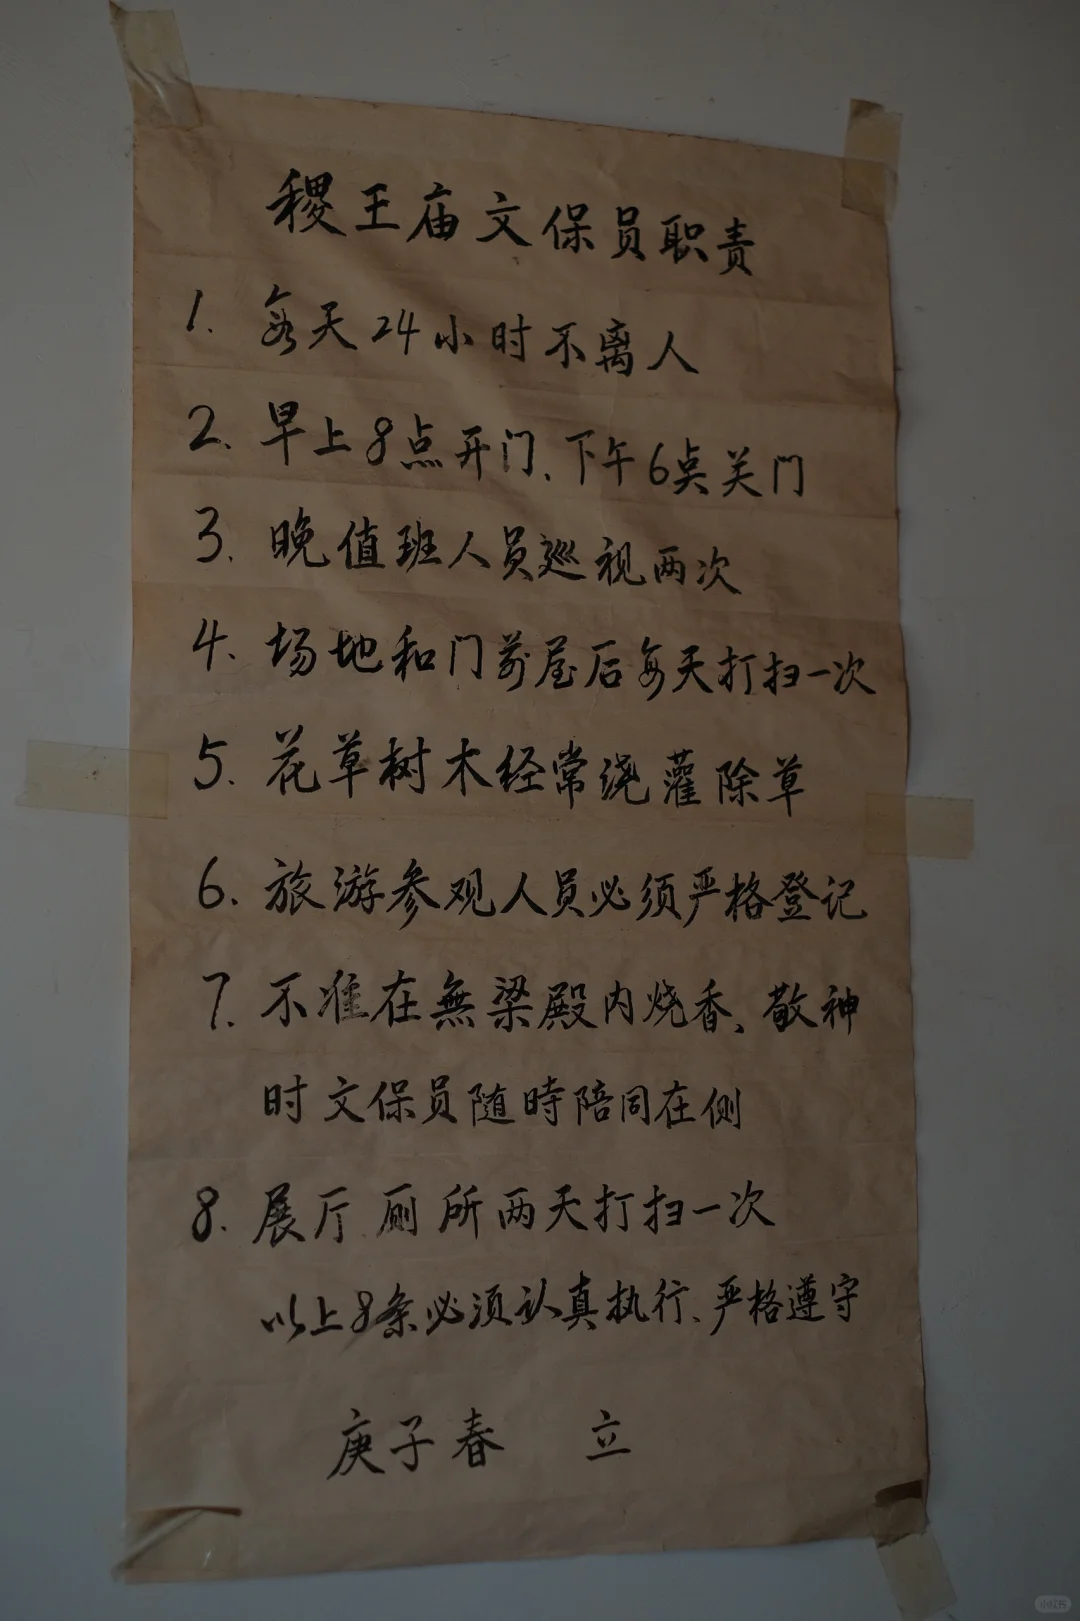 稷王庙文保员职责
1. 每天24小时不离人
2. 早上8点开门、下午6点关门
3. 晚值班人员巡视两次
4. 场地和门前屋后每天打扫一次
5. 花草树木经常浇灌除草
6. 旅游参观人员必须严格登记
7. 不准在無梁殿内烧香、敬神
时文保员随時陪同在侧
8. 展厅、厕所两天打扫一次
以上8条必须认真执行、严格遵守
庚子春 立
小红书